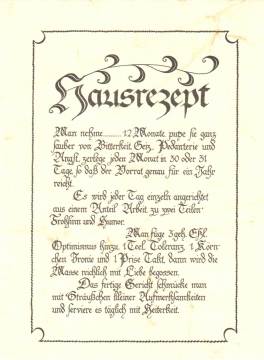 Hausrezept
Man nehme......... 12 Monate, putze sie ganz
sauber von Bitterkeit, Geiz, Pedanterie und
Angst, zerlege jeden Monat in 30 oder 31
Tage, so daß der Vorrat genau für ein Jahr
reicht.
Es wird jeder Tag einzeln angerichtet
aus einem Anteil Arbeit, zu zwei Teilen
Frohsinn und Humor.
Man füge 3 geh. Eßl.
Optimismus hinzu, 1 Teel. Toleranz, 1 Körn-
chen Ironie und 1 Prise Takt, dann wird die
Masse reichlich mit Liebe begossen.
Das fertige Gericht schmücke man
mit Sträußchen kleiner Aufmerksamkeiten
und serviere es täglich mit Heiterkeit.